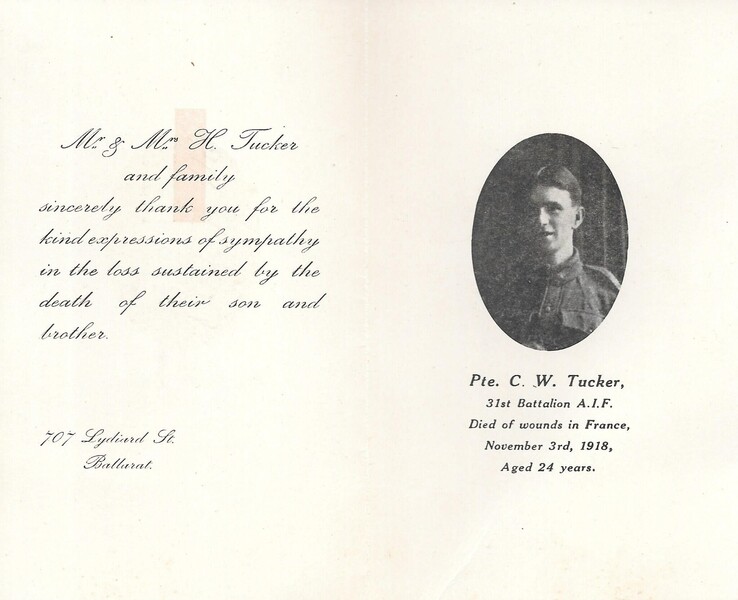 Mr. & Mrs. H. Tucker
and family
sincerely thank you for the
kind expressions of sympathy
in the loss sustained by the
death of their son and
brother.
707 Lydiard St.
Ballarat.
Pte. C. W. Tucker,
31st Battalion A.I.F.
Died of wounds in France,
November 3rd, 1918,
Aged 24 years.